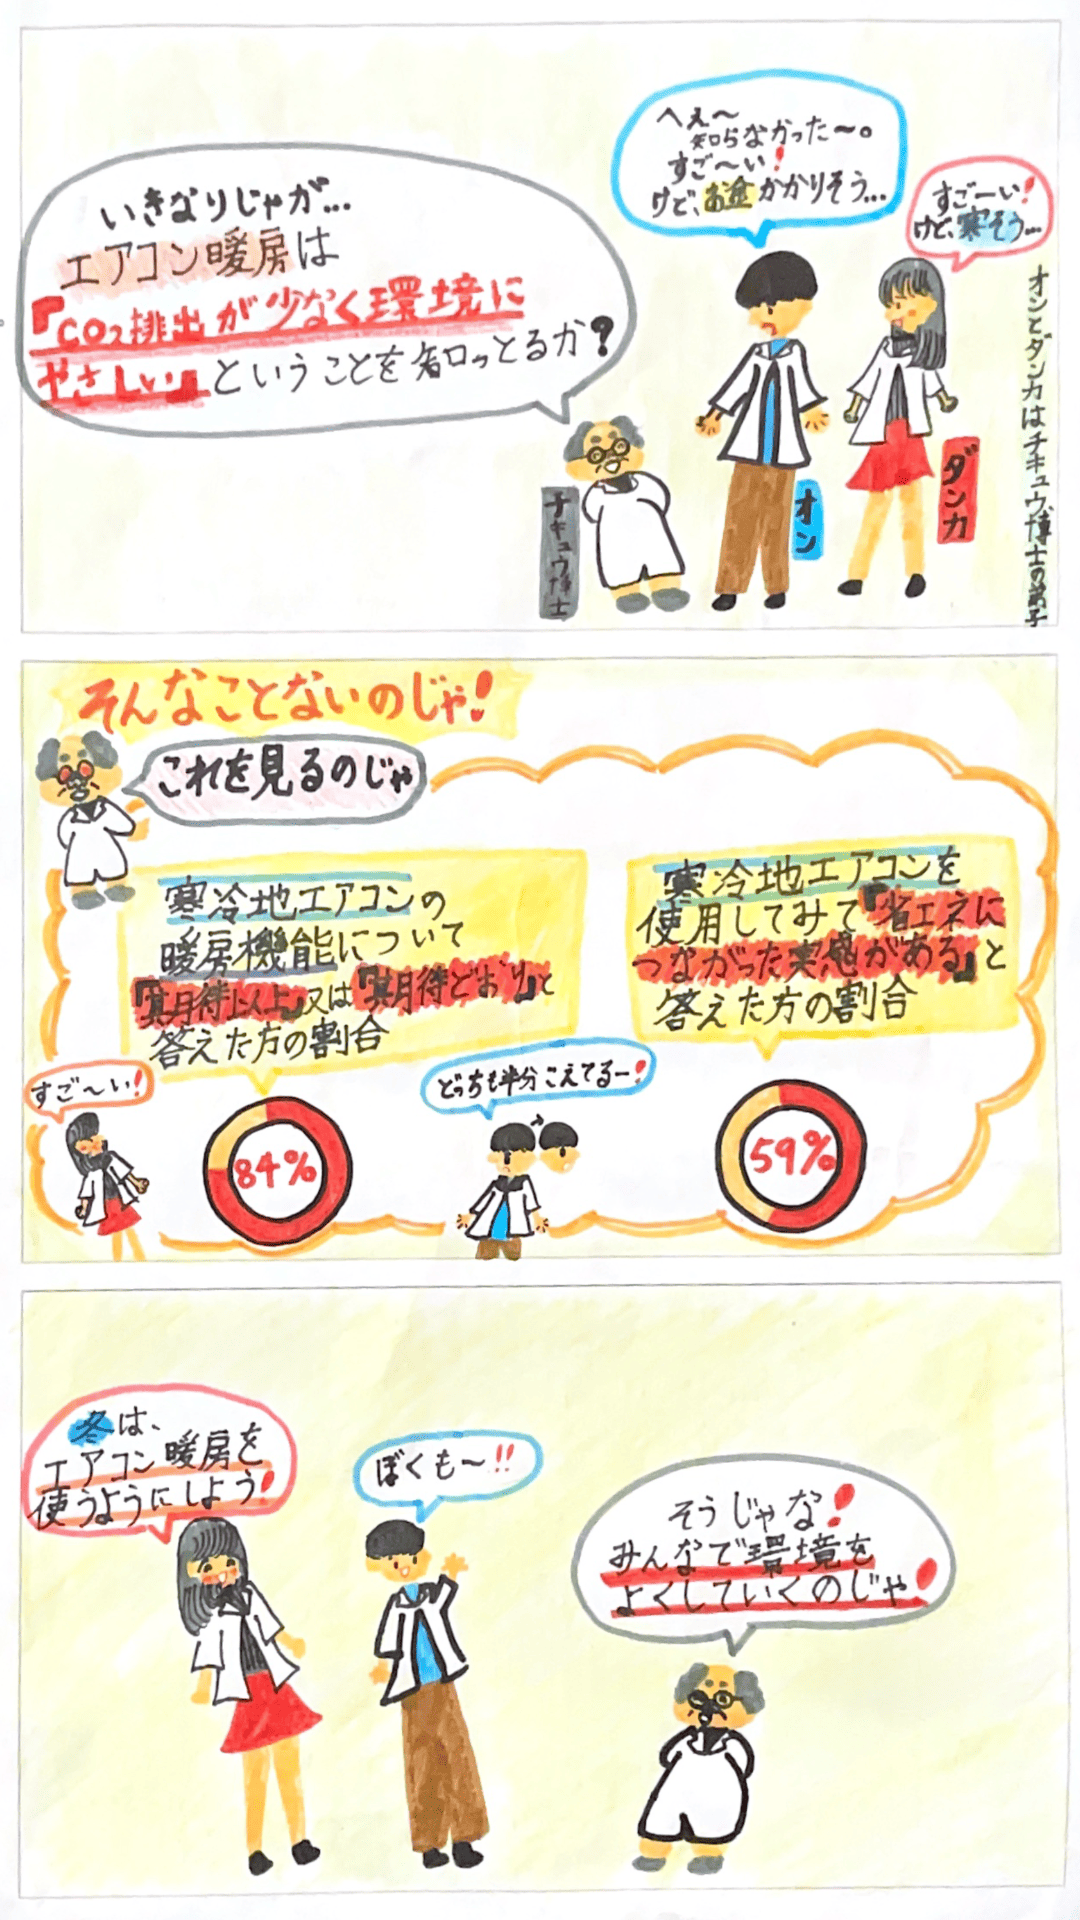 いきなりじゃが...
エアコン暖房は
『CO₂排出が少なく環境に
やさしい』ということを知っとるか?
へぇ〜
知らなかった〜。
すご〜い!
けど、お金かかりそう...
すごーい!
けど、寒そう...
チキュウ博士
オン
ダンカ
オンとダンカはチキュウ博士の弟子
そんなことないのじゃ!
これを見るのじゃ
寒冷地エアコンの
暖房機能について
『期待以上』又は『期待どおり』と
答えた方の割合
寒冷地エアコンを
使用してみて『省エネに
つながった実感がある』と
答えた方の割合
すご〜い!
84%
どっちも半分こえてるー!
59%
冬は、
エアコン暖房を
使うようにしよう!
ぼくも〜!!
そうじゃな!
みんなで環境を
よくしていくのじゃ!